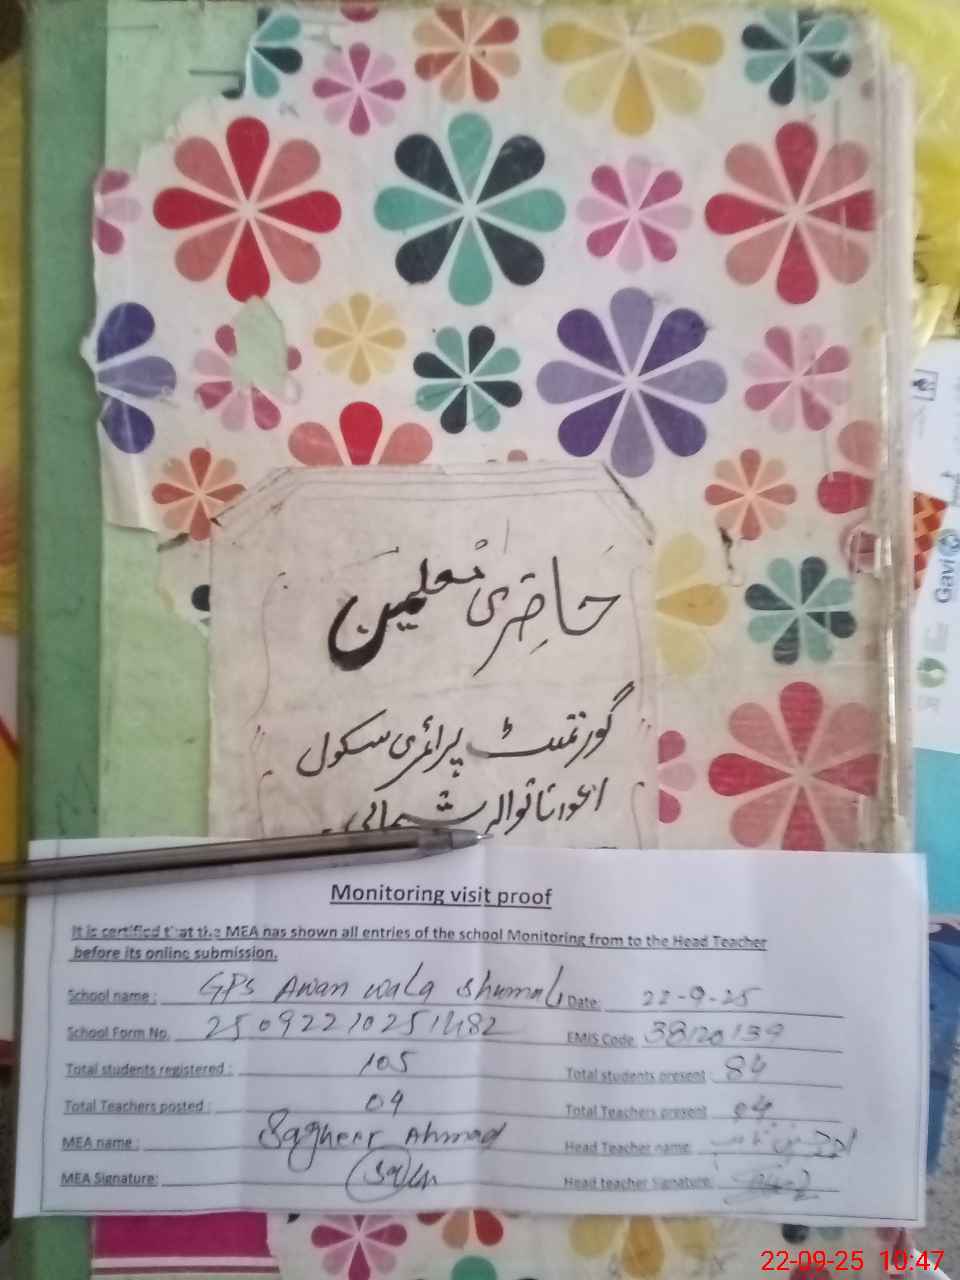 حاضری معلمین
گورنمنٹ پرائمری سکول
اعوانانوالہ شمالی
Gavi
Monitoring visit proof
It is certified that the MEA has shown all entries of the school Monitoring from to the Head Teacher
before its online submission.
School name : GPS Awan wala Shumali Date: 22-9-25
School Form No. EMIS Code 38120139
Total students registered : 105 Total students present : 84
Total Teachers posted : 04 Total Teachers present 04
MEA name : Sagheer Ahmad Head Teacher name:
MEA Signature: Head teacher Signature:
22-09-25 10:47